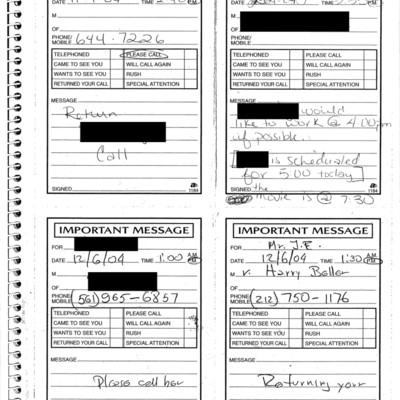 DATE TIME
M
OF
PHONE/
MOBILE 644-7226
TELEPHONED PLEASE CALL
CAME TO SEE YOU WILL CALL AGAIN
WANTS TO SEE YOU RUSH
RETURNED YOUR CALL SPECIAL ATTENTION
MESSAGE
Return
Call
SIGNED 1184
DATE TIME
M
OF
PHONE/
MOBILE
TELEPHONED PLEASE CALL
CAME TO SEE YOU WILL CALL AGAIN
WANTS TO SEE YOU RUSH
RETURNED YOUR CALL SPECIAL ATTENTION
MESSAGE
would
like to work @ 4:00pm
if possible.
[ is scheduled
for 5:00 today]
1184
SIGNED the
movie is @ 7:30
IMPORTANT MESSAGE
FOR
DATE 12/6/04 TIME 1:00 A.M. P.M.
M
OF
PHONE/
MOBILE (561) 965-6857
TELEPHONED PLEASE CALL
CAME TO SEE YOU WILL CALL AGAIN
WANTS TO SEE YOU RUSH
RETURNED YOUR CALL SPECIAL ATTENTION
MESSAGE
Please call her
IMPORTANT MESSAGE
FOR Mr. J.E.
DATE 12/6/04 TIME 1:30 A.M. P.M.
M r. Harry Beller
OF
PHONE/
MOBILE (212) 750-1176
TELEPHONED PLEASE CALL
CAME TO SEE YOU WILL CALL AGAIN
WANTS TO SEE YOU RUSH
RETURNED YOUR CALL SPECIAL ATTENTION
MESSAGE
Returning your